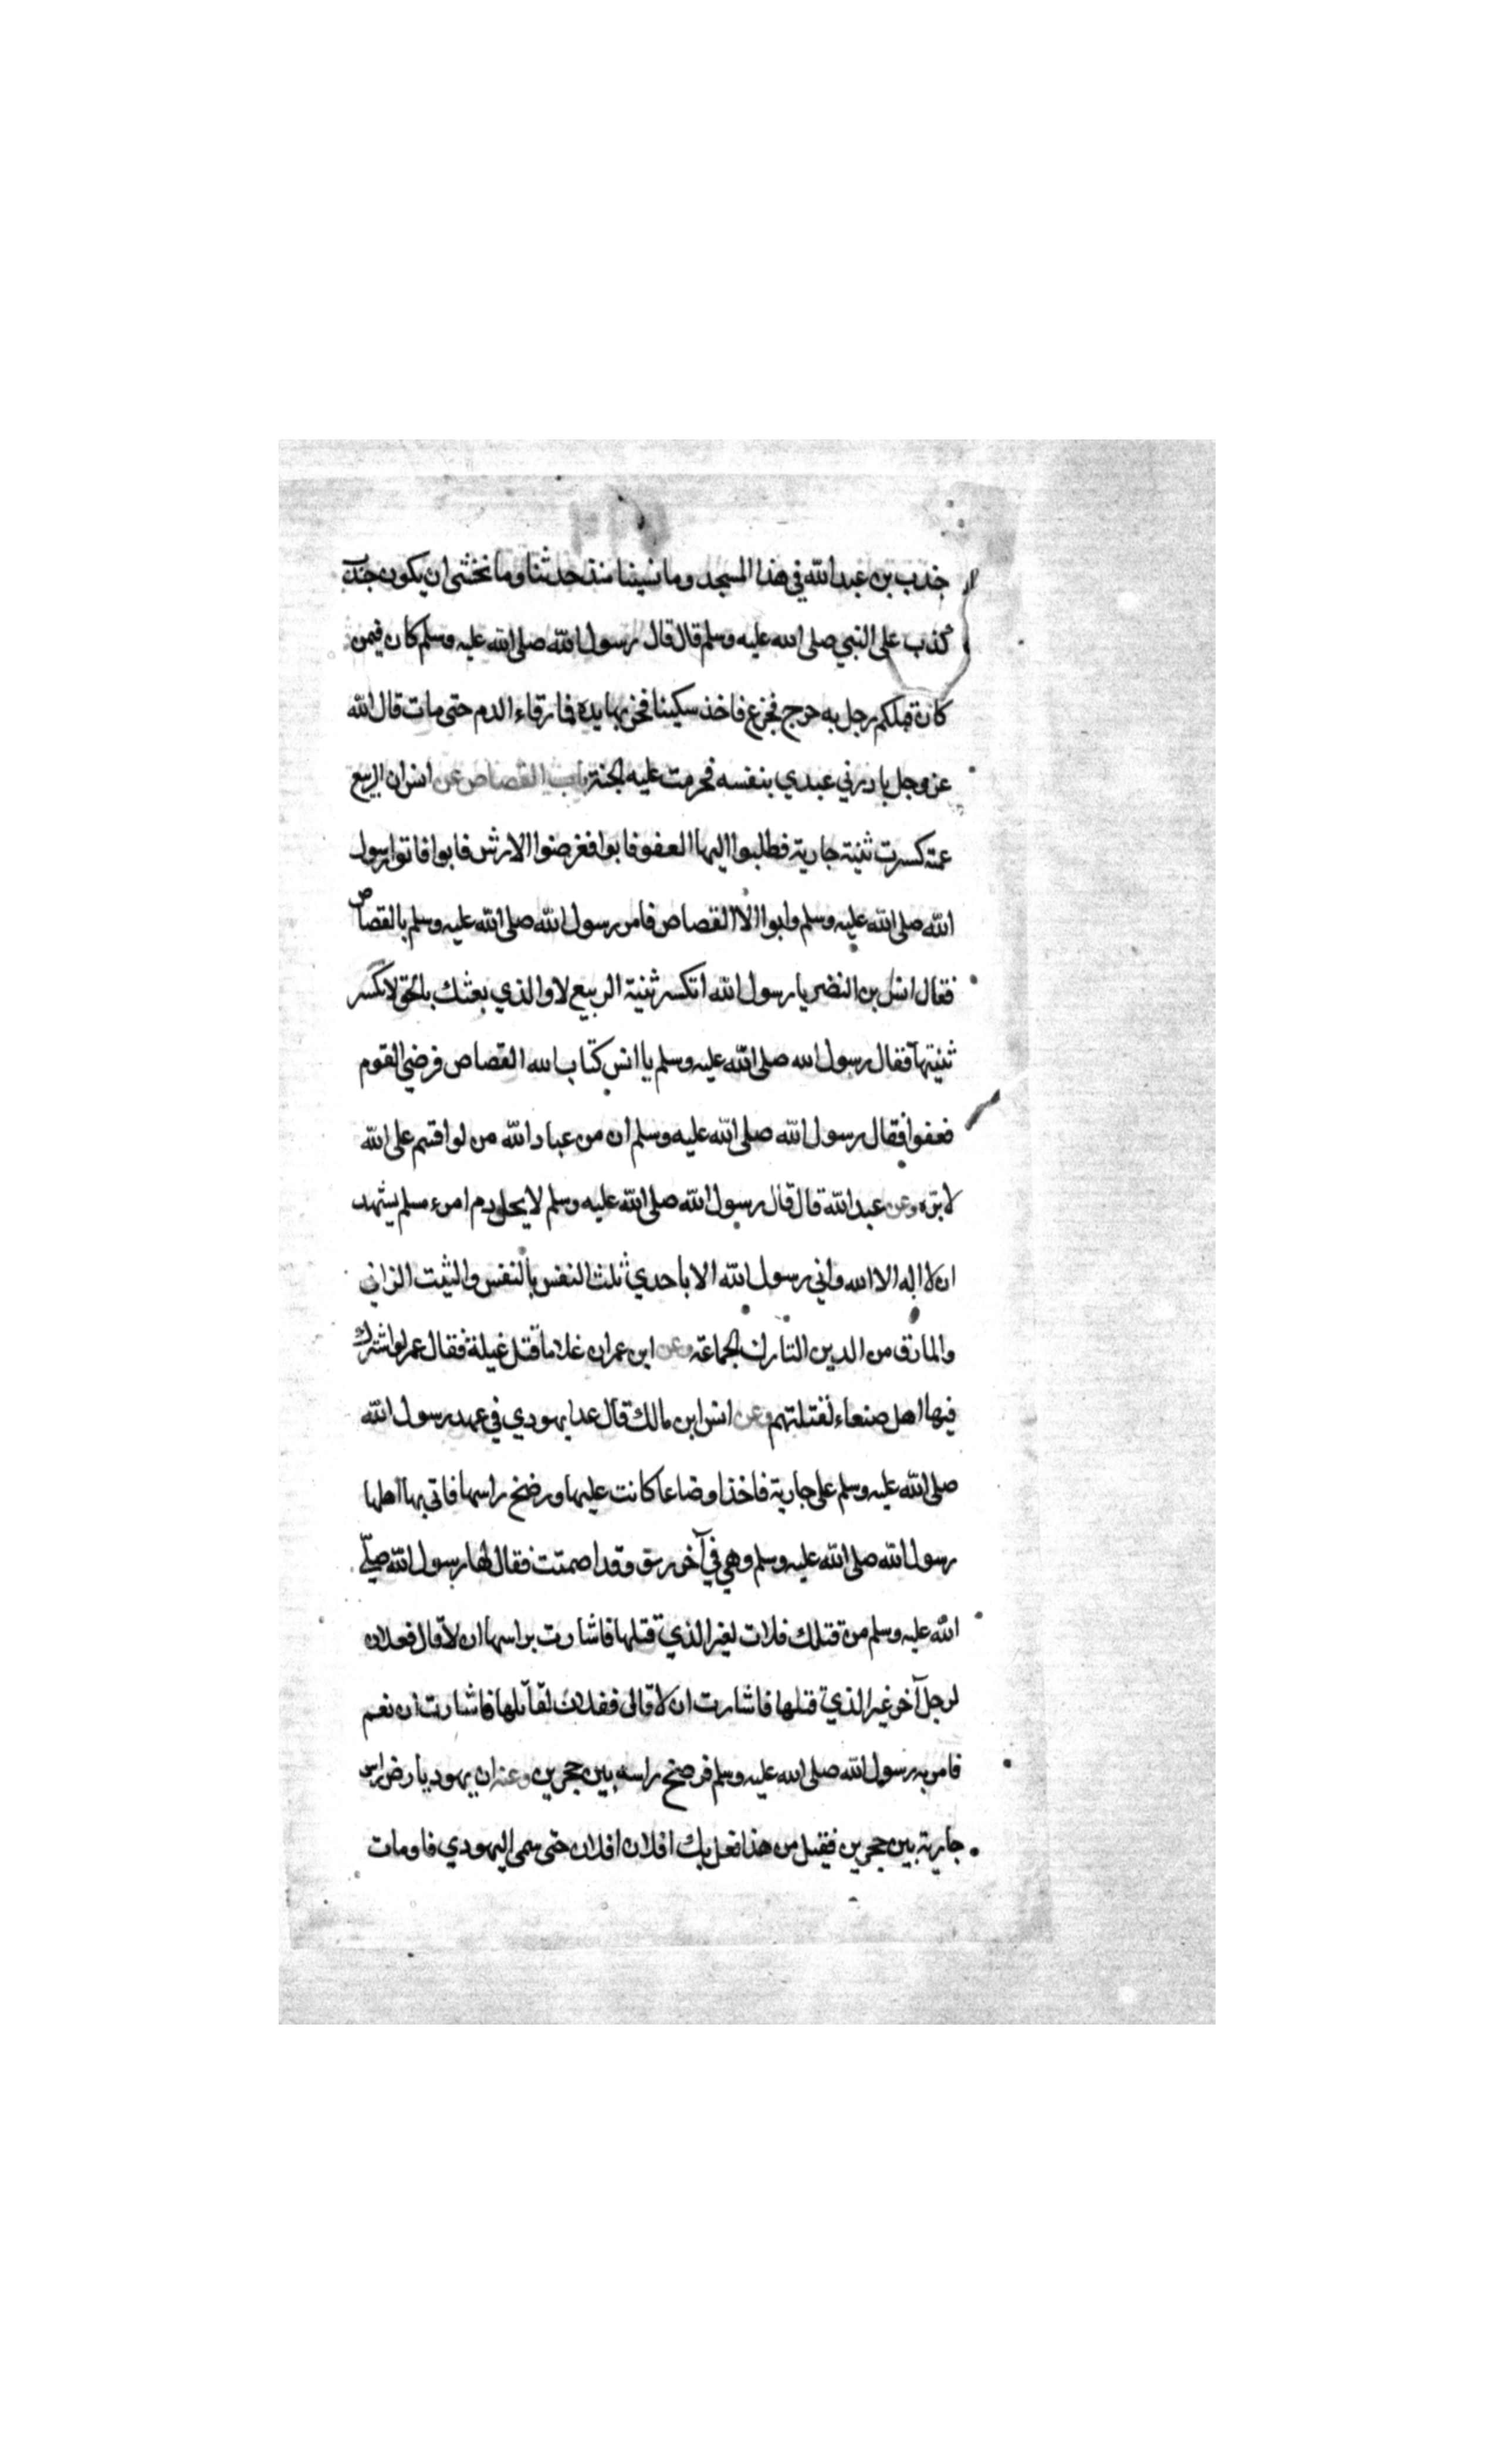 جندب بن عبد الله في هذا المسجد وما نسينا منذ حدثنا وما نخشى ان يكون جندب
كذب على النبي صلى الله عليه وسلم قال قال رسول الله صلى الله عليه وسلم كان فيمن
كان قبلكم رجل به جرح فجزع فاخذ سكينا فحز بها يده فما رقاء الدم حتى مات قال الله
عز وجل بادرني عبدي بنفسه فحرمت عليه الجنة باب القصاص عن انس ان الربيع
عمته كسرت ثنية جارية فطلبوا اليها العفو فابوا فعرضوا الارش فابوا فاتوا رسول
الله صلى الله عليه وسلم وابوا الا القصاص فامر رسول الله صلى الله عليه وسلم بالقصاص
فقال انس بن النضر يا رسول الله اتكسر ثنية الربيع لا والذي بعثك بالحق لا تكسر
ثنيتها فقال رسول الله صلى الله عليه وسلم يا انس كتاب الله القصاص فرضي القوم
فعفوا فقال رسول الله صلى الله عليه وسلم ان من عباد الله من لو اقسم على الله
لابره وعن عبد الله قال قال رسول الله صلى الله عليه وسلم لا يحل دم امرء مسلم يشهد
ان لا اله الا الله واني رسول الله الا باحدي ثلث النفس بالنفس والثيب الزاني
والمارق من الدين التارك الجماعة وعن ابن عمر ان غلاما قتل غيلة فقال عمر لو اشترك
فيها اهل صنعاء لقتلتهم وعن انس ابن مالك قال عدا يهودي في عهد رسول الله
صلى الله عليه وسلم على جارية فاخذ اوضاعا كانت عليها ورضخ راسها فاتي بها اهلها
رسول الله صلى الله عليه وسلم وهي في آخر رمق وقد اصمتت فقال لها رسول الله صلى
الله عليه وسلم من قتلك فلان لغير الذي قتلها فاشارت براسها ان لا قال ففلان
لرجل آخر غير الذي قتلها فاشارت ان لا قال ففلان لقاتلها فاشارت ان نعم
فامر به رسول الله صلى الله عليه وسلم فرضخ راسه بين حجرين وعنه ان يهوديا رض راس
جارية بين حجرين فقيل من هذا فعل بك افلان افلان حتى سمى اليهودي فاومات